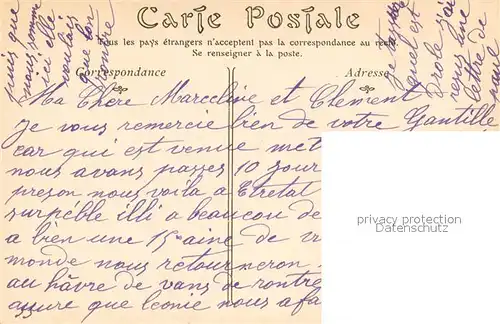 Carte Postale
Tous les pays étrangers n'acceptent pas la correspondance au recto
Se renseigner à la poste.
Correspondance
Adresse
Ma Chere Marceline et Clement
je vous remercie bien de votre Gantille
car qui est venue met
nous avons passes 10 jour
preson nous voila a Etretat
surpéble illi a beaucou de
a bien une 15aine de
monde nous retourneron
au hâvre de vans de rontre
assure que leonie nous a fa
puis que
nous somme
ici elle
voulais
que lon
rontre
quel est
Drole j'ai
reçus une
lettre de
privacy protection
Datenschutz